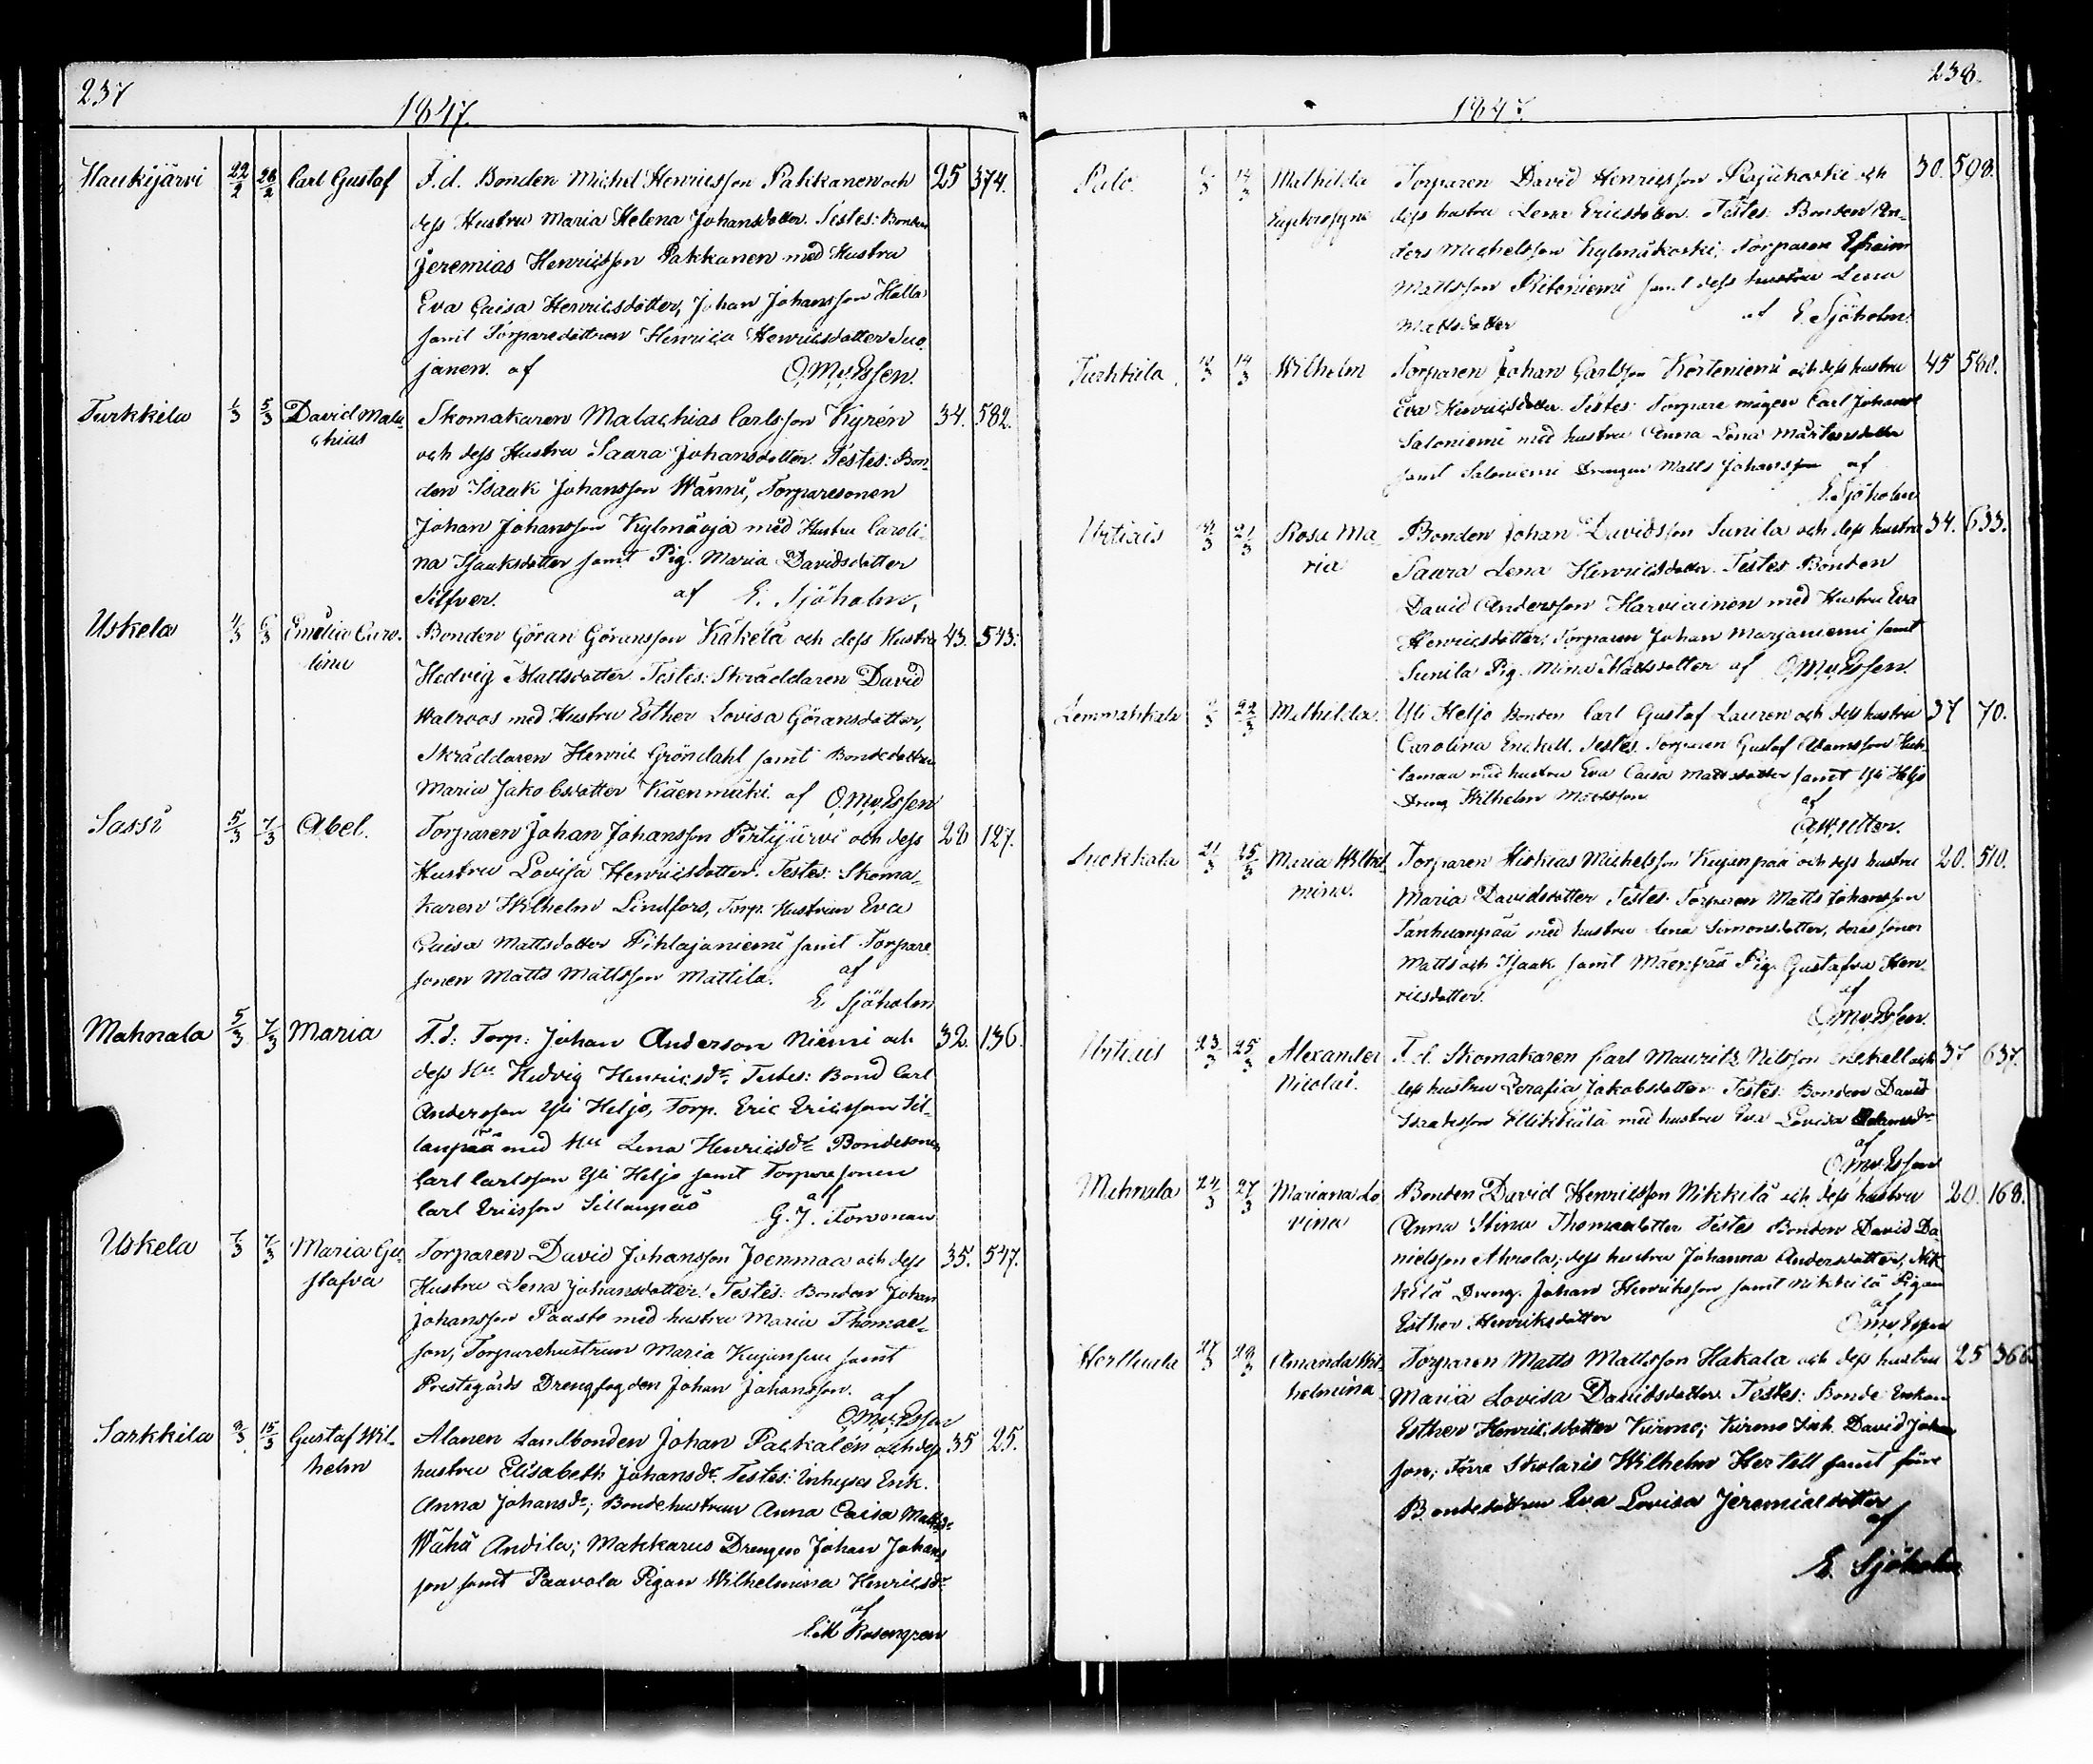 237
1847.
Haukijärvi 22/2 28/2 Carl Gustaf F.d. Bonden Michel Henricsson Pakkanen och 25 374.
dess Hustru Maria Helena Johansdotter. Testes: Bonden
Jeremias Henricsson Pakkanen med Hustru
Eva Caisa Henricsdotter, Johan Johansson Halla
samt Torparedottren Henrica Henricsdotter Suo
janen. af O.M.v.Essen.
Turkkila 1/3 5/3 David Mala- Skomakaren Malachias Carlsson Kyrén 34. 582.
chias och dess Hustru Saara Johansdotter. Testes: Bon-
den Isaak Johansson Wänni, Torparesonen
Johan Johansson Kylmäoja med Hustru Caroli-
na Isaaksdotter samt Pig. Maria Davidsdotter
Silfver. af E. Sjöholm.
Uskela 4/3 6/3 Emelia Caro- Bonden Göran Göransson Käkelä och dess Hustru 43. 543.
lina Hedvig Mattsdotter Testes: Skräddaren David
Walroos med Hustru Esther Lovisa Göransdotter,
Skräddaren Henric Gröndahl samt Bondedottren
Maria Jakobsdotter Käenmäki. af O.M.v.Essen
Sassi 5/3 7/3 Abel. Torparen Johan Johansson Pertijärvi och dess 28 127.
Hustru Lovisa Henricsdotter. Testes: Skoma-
karen Wilhelm Lindfors, Torp. Hustrun Eva
Caisa Mattsdotter Pihlajaniemi samt Torpare
sonen Matts Mattsson Mattila. af
E. Sjöholm
Mahnala 5/3 7/3 Maria F.d: Torp: Johan Anderson Niemi och 32. 136.
dess Hu Hedvig Henricsdr. Testes: Bond Carl
Andersson Yli Heljo, Torp. Eric Ericsson Sil-
lanpää med Hu Lena Henricsdr Bondesonen
Carl Carlsson Yli Heljo samt Torparesonen
Carl Ericsson Sillanpää af
G. J. Forsman
Uskela 7/3 7/3 Maria Gu- Torparen David Johansson Joenmaa och dess 35. 547.
stafva Hustru Lena Johansdotter. Testes: Bonden Johan
Johansson Pausto med hustru Maria Thomae-
son, Torparehustrun Maria Kujanpää samt
Prestegårds Drengfogden Johan Johansson. af
O.M.v.Essen
Sarkkila 9/3 15/3 Gustaf Wil- Alanen Landbonden Johan Packalén och dess 35 25.
helm hustru Elisabeth Johansdr. Testes: Inhyses Enk.
Anna Johansdr; Bondehustrun Anna Caisa Mattsdr
Wähä Andila; Makkarus Drengen Johan Johans
son samt Paavola Pigan Wilhelmina Henricsdr.
af
Rosengren
238.
1847.
Palo 14/3 Mathilda Torparen David Henricsson och 30. 598.
Euphrosyne dess hustru Lena Ericsdotter. Testes: Bonden An-
ders Michelsson Kylmäkoski; Torparen Efraim
Mattsson Riiteniemi samt dess hustru Lena
Mattsdotter af E. Sjöholm.
Turkkila 14/3 Wilhelm Torparen Johan Carlsson Korteniemi och dess hustru 45 580.
Eva Henricsdotter. Testes: Torpare mågen Carl Johans
Saloniemi med hustru Anna Lena Mårtensdotter
samt Saloniemi Drengen Matts Johansson af
E. Sjöholm
Urtiais 21/3 Rosa Ma- Bonden Johan Davidsson Sunila och dess hustru 34. 633.
ria Saara Lena Henricsdotter. Testes Bonden
David Andersson Harviainen med Hustru Eva
Henricsdotter; Torparen Johan Marjaniemi samt
Sunila Pig. Mina Mattsdotter af O.M.v.Essen.
Lemmakkala 22/3 Mathilda. Yli Heljo Bonden Carl Gustaf Lauren och dess hustru 37 70.
Carolina Enckell. Testes. Torparen Gustaf Adamsson
med hustru Eva Caisa Mattsdotter samt Yli Heljo
Dreng Wilhelm Mattsson
af
Utter.
Suokkala 21/3 25/3 Maria Wilhel- Torparen Hiskias Michelsson Kujanpää och dess hustru 20. 510.
mina. Maria Davidsdotter Testes: Torparen Matts Johansson
Tanhuanpää med hustru Lena Simonsdotter, deras söner
Matts och Isaak samt Mäenpää Pig. Gustafva Hen-
ricsdotter. af
O.M.v.Essen.
Urtiais 23/3 25/3 Alexander F.d. Skomakaren Carl Maurits Nilsson Enckell och 37 637.
Nicolai. dess hustru Serafia Jakobsdotter Testes: Bonden David
Isaaksson med hustru Eva Lovisa Adamsdr
af
O.M.v.Essen
Mahnala 24/3 27/3 Mariana Lo Bonden David Henricsson Nikkilä och dess hustru 20. 168.
vina Anna Stina Thomasdotter Testes Bonden David Da-
nielsson Ahrola; dess hustru Johanna Andersdotter, Nik
kilä Dreng. Johan Henriksson samt Nikkilä Pigan
Esther Henriksdotter af
O.M.v.Essen
Herttuala 27/3 29/3 Amanda Wil- Torparen Matts Mattsson Hakala och dess hustru 25 366
helmina Maria Lovisa Davidsdotter. Testes: Bonde Enkan
Esther Henricsdotter Kirmo; Kirmo Inh. David Johans
son; Förre Skolaris Wilhelm Hertell samt förre
Bondedottren Eva Lovisa Jeremiaedotter
af
E. Sjöholm